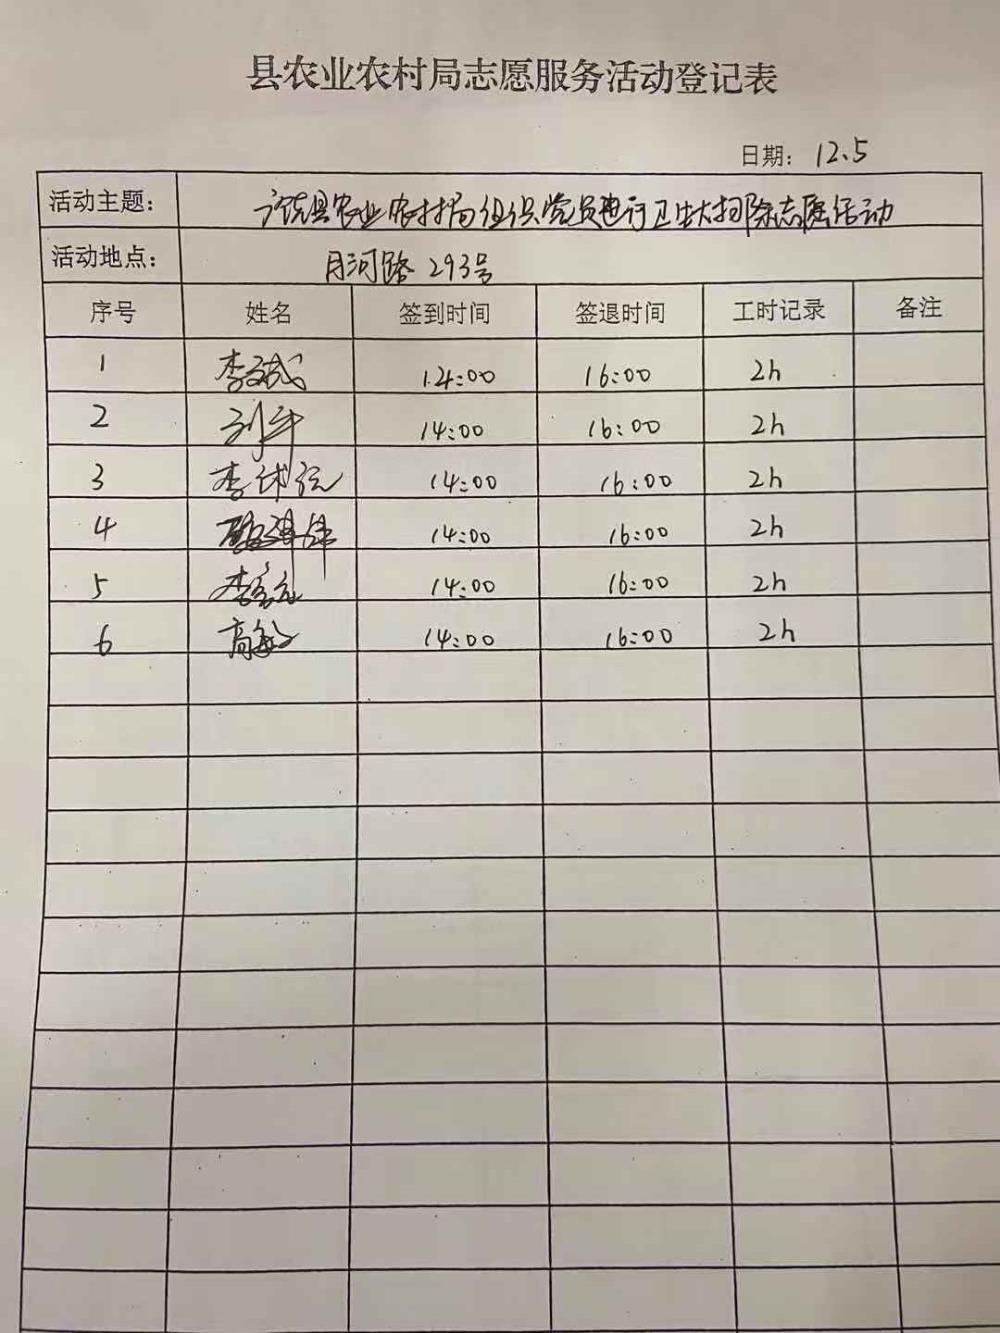 县农业农村局志愿服务活动登记表
日期：12.5
活动主题： 县农业农村局组织党员进行卫生大扫除志愿活动
活动地点： 月河路293号
序号 姓名 签到时间 签退时间 工时记录 备注
1 李 14:00 16:00 2h
2 14:00 16:00 2h
3 李 14:00 16:00 2h
4 14:00 16:00 2h
5 李 14:00 16:00 2h
6 高敏 14:00 16:00 2h